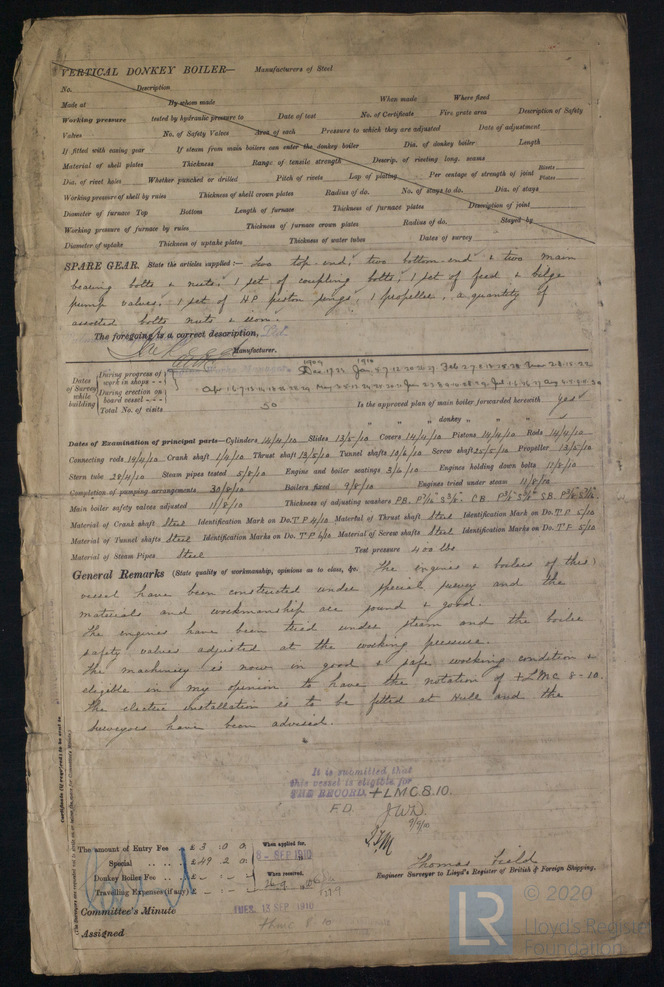 VERTICAL DONKEY BOILER— Manufacturers of Steel
No. Description
Made at By whom made When made Where fixed
Working pressure tested by hydraulic pressure to Date of test No. of Certificate Fire grate area Description of Safety
Valves No. of Safety Valves Area of each Pressure to which they are adjusted Date of adjustment
If fitted with easing gear If steam from main boilers can enter the donkey boiler Dia. of donkey boiler Length
Material of shell plates Thickness Range of tensile strength Descrip. of riveting long. seams
Dia. of rivet holes Whether punched or drilled Pitch of rivets Lap of plating Per centage of strength of joint Rivets Plates
Working pressure of shell by rules Thickness of shell crown plates Radius of do. No. of stays to do. Dia. of stays
Diameter of furnace Top Bottom Length of furnace Thickness of furnace plates Description of joint
Working pressure of furnace by rules Thickness of furnace crown plates Radius of do. Stayed by
Diameter of uptake Thickness of uptake plates Thickness of water tubes Dates of survey
SPARE GEAR. State the articles supplied:— Two top end, two bottom end & two main
bearing bolts & nuts, 1 set of coupling bolts, 1 set of feed & bilge
pump valves, 1 set of H.P. piston rings, 1 propeller, a quantity of
assorted bolts nuts & iron.
The foregoing is a correct description,
Manufacturer.
Dates of Survey while building
During progress of work in shops - - 1909 1910 Dec 17
During erection on board vessel - - -
Total No. of visits 50 Is the approved plan of main boiler forwarded herewith yes
" " " donkey " "
Dates of Examination of principal parts—Cylinders 14/4/10 Slides 13/5/10 Covers 14/4/10 Pistons 14/4/10 Rods 14/4/10
Connecting rods 14/4/10 Crank shaft 1/4/10 Thrust shaft 13/5/10 Tunnel shafts 10/6/10 Screw shaft 25/5/10 Propeller 13/5/10
Stern tube 28/4/10 Steam pipes tested 5/8/10 Engine and boiler seatings 3/6/10 Engines holding down bolts 11/8/10
Completion of pumping arrangements 30/8/10 Boilers fixed 9/8/10 Engines tried under steam 11/8/10
Main boiler safety valves adjusted 11/8/10 Thickness of adjusting washers
Material of Crank shaft Steel Identification Mark on Do. T.F. 4/10 Material of Thrust shaft Steel Identification Mark on Do. T.F. 5/10
Material of Tunnel shafts Steel Identification Marks on Do. T.F. 6/10 Material of Screw shafts Steel Identification Marks on Do. T.F. 5/10
Material of Steam Pipes Steel Test pressure 400 lbs
General Remarks (State quality of workmanship, opinions as to class, &c. The engines & boilers of this
vessel have been constructed under special survey and the
materials and workmanship are sound & good.
The engines have been tried under steam and the boiler
safety valves adjusted at the working pressure.
The machinery is now in good & safe working condition &
eligible in my opinion to have the notation of +LMC 8-10.
The electric installation is to be fitted at Hull and the
surveyors have been advised.
It is submitted that
this vessel is eligible for
THE RECORD. +LMC 8.10.
F.D.
9/9/10
The amount of Entry Fee . . £ 3 : 0 : 0 When applied for,
Special . . . . £ 49 : 2 : 0 8 - SEP 1910
Donkey Boiler Fee . . . £ - : - : - When received,
Travelling Expenses (if any) £ - : - : -
Thomas Field
Engineer Surveyor to Lloyd's Register of British & Foreign Shipping.
Committee's Minute TUES. 13 SEP. 1910
Assigned + LMC 8 10
LR
© 2020
Lloyd's Register
Foundation